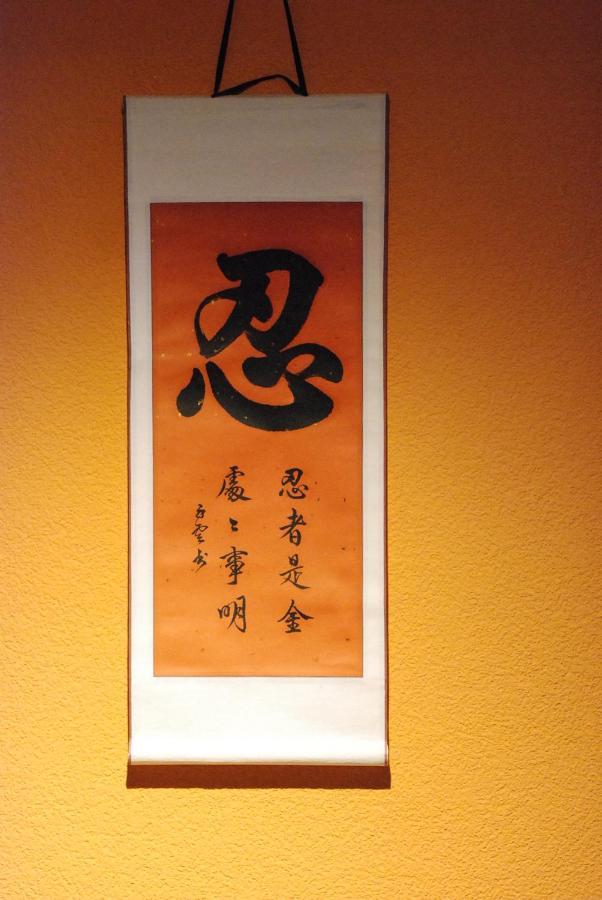 忍
忍者是金
處〻事明